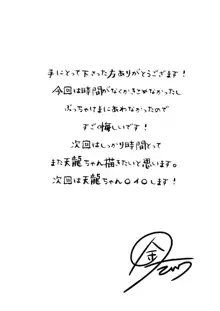 手にとって下さった方ありがとうございます!
今回は時間がなくかきこめなかったし
ぶっちゃけまにあわなかったので
すごく悔しいです!
次回はしっかり時間とって
また天龍ちゃん描きたいと思います。
次回は天龍ちゃん○イ○します!